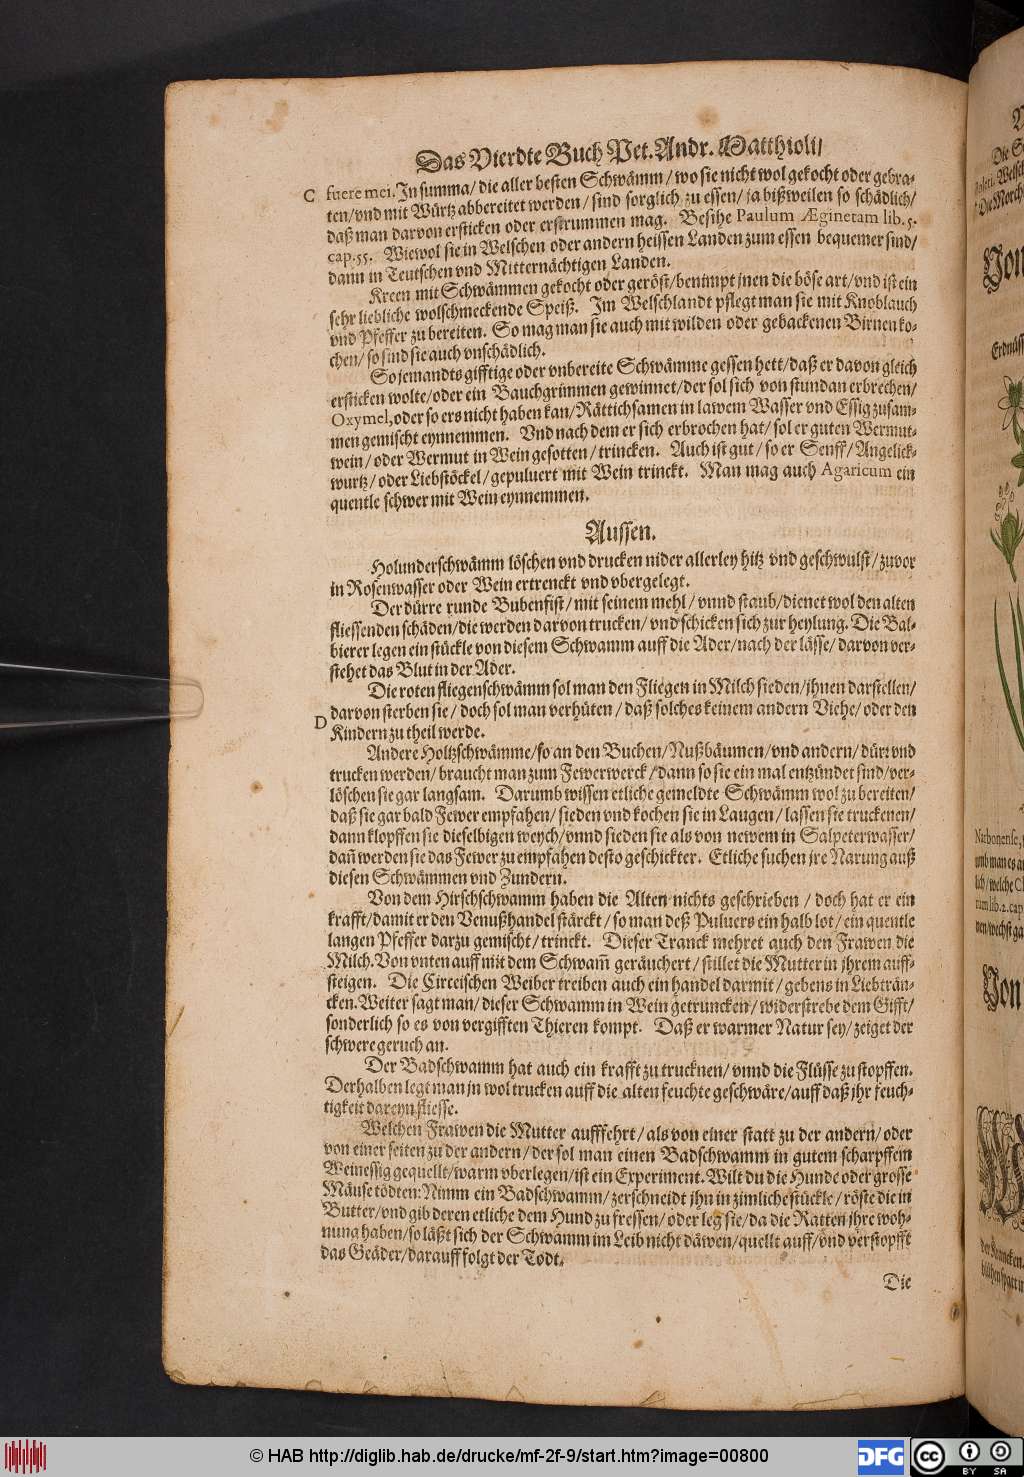 Das Vierdte Buch Pet. Andr. Matthioli/
C
fuere mei. In summa/ die aller besten Schwämm/ wo sie nicht wol gekocht oder gebra-
ten/ vnd mit Würtz abbereitet werden/ sind sorglich zu essen/ ja bißweilen so schädlich/
daß man darvon ersticken oder erstrummen mag. Besihe Paulum Æginetam lib. 5.
cap. 55. Wiewol sie in Welschen oder andern heissen Landen zum essen bequemer sind/
dann in Teutschen vnd Mitternächtigen Landen.
Kreen mit Schwämmen gekocht oder geröst/ benimpt jnen die böse art/ vnd ist ein
sehr liebliche wolschmeckende Speiß. Im Welschlandt pflegt man sie mit Knoblauch
vnd Pfeffer zu bereiten. So mag man sie auch mit wilden oder gebackenen Birnen ko-
chen/ so sind sie auch vnschädlich.
So jemandts gifftige oder vnbereite Schwämme gessen hett/ daß er davon gleich
ersticken wolte/ oder ein Bauchgrimmen gewinnet/ der sol sich von stundan erbrechen/
Oxymel, oder so ers nicht haben kan/ Rättichsamen in lawem Wasser vnd Essig zusam-
men gemischt eynnemmen. Vnd nach dem er sich erbrochen hat/ sol er guten Wermut-
wein/ oder Wermut in Wein gesotten/ trincken. Auch ist gut/ so er Senff/ Angelick-
wurtz/ oder Liebstöckel/ gepuluert mit Wein trinckt. Man mag auch Agaricum ein
quentle schwer mit Wein eynnemmen.
Aussen.
Holunderschwämm löschen vnd drucken nider allerley hitz vnd geschwulst/ zuvor
in Rosenwasser oder Wein ertrenckt vnd vbergelegt.
Der dürre runde Bubenfist/ mit seinem mehl/ vnnd staub/ dienet wol den alten
fliessenden schäden/ die werden darvon trucken/ vnd schicken sich zur heylung. Die Bal-
bierer legen ein stückle von diesem Schwamm auff die Ader/ nach der lässe/ darvon ver-
stehet das Blut in der Ader.
Die roten fliegenschwämm sol man den Fliegen in Milch sieden/ jhnen darstellen/
darvon sterben sie/ doch sol man verhüten/ daß solches keinem andern Viehe/ oder den
D
Kindern zu theil werde.
Andere Holtzschwämme/ so an den Buchen/ Nußbäumen/ vnd andern/ dürr vnd
trucken werden/ braucht man zum Fewerwerck/ dann so sie ein mal entzündet sind/ ver-
löschen sie gar langsam. Darumb wissen etliche gemeldte Schwämm wol zu bereiten/
daß sie gar bald Fewer empfahen/ sieden vnd kochen sie in Laugen/ lassen sie truckenen/
dann klopffen sie dieselbigen weych/ vnnd sieden sie als von newem in Salpeterwasser/
dañ werden sie das Fewer zu empfahen desto geschickter. Etliche suchen jre Narung auß
diesen Schwämmen vnd Zundern.
Von dem Hirschschwamm haben die Alten nichts geschrieben/ doch hat er ein
krafft/ damit er den Venußhandel stärckt/ so man deß Puluers ein halb lot/ ein quentle
langen Pfeffer darzu gemischt/ trinckt. Dieser Tranck mehret auch den Frawen die
Milch. Von vnten auff mit dem Schwam̃ geräuchert/ stillet die Mutter in jhrem auff-
steigen. Die Circeischen Weiber treiben auch ein handel darmit/ gebens in Liebträn-
cken. Weiter sagt man/ dieser Schwamm in Wein getruncken/ widerstrebe dem Gifft/
sonderlich so es von vergifften Thieren kompt. Daß er warmer Natur sey/ zeiget der
schwere geruch an.
Der Badschwamm hat auch ein krafft zu trucknen/ vnnd die Flüsse zu stopffen.
Derhalben legt man jn wol trucken auff die alten feuchte geschwäre/ auff daß jhr feuch-
tigkeit dareyn fliesse.
Welchen Frawen die Mutter aufffehrt/ als von einer statt zu der andern/ oder
von einer seiten zu der andern/ der sol man einen Badschwamm in gutem scharpffem
Weinessig gequellt/ warm vberlegen/ ist ein Experiment. Wilt du die Hunde oder grosse
Mäuse tödten: Nimm ein Badschwamm/ zerschneidt jhn in zimliche stückle/ röste die in
Butter/ vnd gib deren etliche dem Hund zu fressen/ oder leg sie/ da die Ratten jhre woh-
nung haben/ so läßt sich der Schwamm im Leib nicht däwen/ quellt auff/ vnd verstopfft
das Geäder/ darauff folgt der Todt.
Die
Die
Welsch
Die Morch
Von
Erdnüss
Narbonense,
vmb man es
lich/ welche
rum lib. 2. cap
Von
© HAB http://diglib.hab.de/drucke/mf-2f-9/start.htm?image=00800
DFG
cc
BY SA